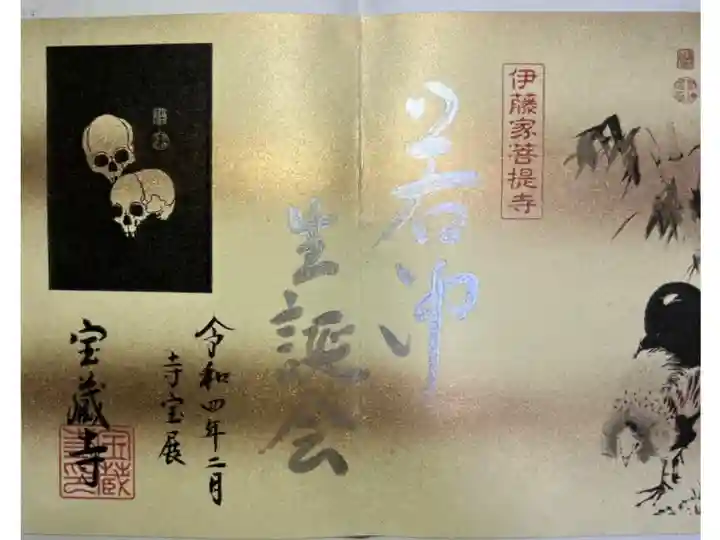 伊藤家菩提寺
若冲
生誕会
令和四年二月
寺宝展
宝蔵寺